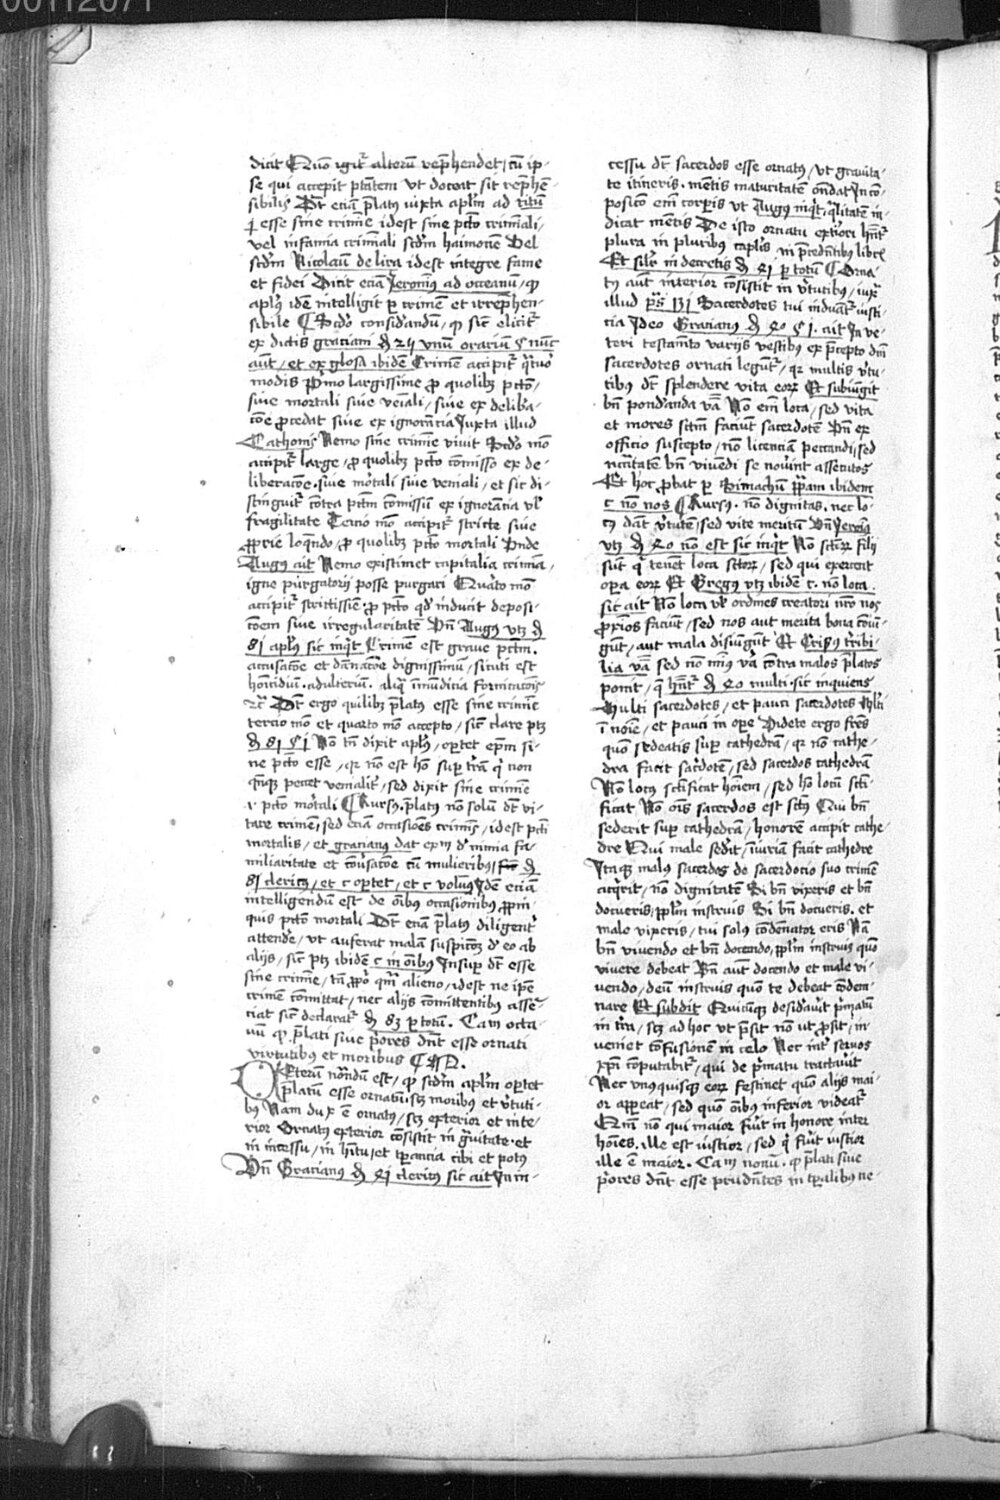 00112071
dicit Quō igit᷑ alterū rep̄hendet / cū ip-
se qui accepit ptātem vt doceat sit rep̄hē-
sibilis Dꝫ eciā p̄latꝰ iuxta aplm̄ ad titū
i esse sine crimīe idest sine pctō crimīali /
vel infamia crimīali scd̄m haimonē Vel
scd̄m Nicolaū de lira idest integre fame
et fidei Dicit eciā Jeronimꝰ ad occeanū / ꝙ
aplꝰ idē intelligit ꝑ crimē et irrep̄hen-
sibile Scd̄o considᷓandū / ꝙ sic̄ elicit᷑
ex dictis graciani
aūt / et ex glosa ibidē Crimē accipit᷑ q̄tuor
modis Prīmo largissime ꝓ quolibꝫ pctō /
siue mortali siue veīali / siue ex delibᷓa-
cōe ꝓcedat siue ex ignorācia Juxta illud
Cathonis Nemo sine crimīe viuit Scd̄o mō
accipit᷑ large / ꝓ quolibꝫ pctō cōmisso ex de-
liberacōe / siue mōtali siue veniali / et sic di-
stinguit᷑ cōtra pctm̄ cōmissū ex ignorācia vl̄
fᷓagilitate Tercio mō accipit᷑ stricte siue
ꝓprie loqn̄do / ꝓ quolibꝫ pctō mortali Vnde
Augꝰ ait Nemo existimet capitalia crimīa /
igne purgatorij posse purgari Quarto mō
accipit᷑ strictissīe ꝓ pctō qd̄ inducit deposi-
cōem siue irregularitatē Vn̄ Augꝰ vtꝫ
81 aplꝰ sic inqt̄ Crimē est graue pctm̄ .
accusacōe et dānacōe dignissimū / sicuti est
homicidiū . adulteriū . aliq̄ īmūdicia fornicacōis
Dꝫ ergo quilibꝫ p̄latꝰ esse sine crimīe
tercio mō et quarto mō accepto / sic̄ clare ptꝫ
Nō tn̄ dixit aplꝰ / oꝑtet epm̄ si-
ne pctō esse / qꝛ nō est hō suꝑ tᷓrā qͥ non
qn̄qꝫ peccet venialit᷑ / sed dixit sine crimīe
i pctō mortali Rursꝰ . p̄latꝰ nō solū dꝫ vi-
tare crimē / sed eciā occasiōes crimīs / idest pcti
mortalis / et gracianus dat exm̄ dᷓ nimia fa-
miliaritate et cōuᷓsacōe cū mulieribꝰ
81 clericꝰ / et c oꝑtet / et c volumꝰ Idē eciā
intelligendū est de oībꝰ occasionibꝰ ꝓpin-
quis pctō mortali Dꝫ eciā p̄latꝰ diligent᷑
attendᷓe / vt auferat malā suspicōꝫ dᷓ eo ab
alijs / sic̄ ptꝫ ibidē c in oībꝰ Insuꝑ dꝫ esse
sine crimīe / tn̄ ꝓpo qm̄ alieno / idest ne ipē
crimē cōmittat / nec alijs cōmittentibꝰ assē-
ciat sic̄ declarat᷑ 83 ꝑ totū . Cam octa-
uū ꝙ p̄lati siue p̄ores dn̄t esse ornati
virtutibꝰ et moribus
Ceterū notādū est / ꝙ scd̄m aplm̄ oꝑtet
p̄latū esse ornatū / scꝫ moribꝰ et vᷓtuti-
bꝰ Nam duplex ē ornatꝰ / scꝫ exterior et inte-
rior Ornatꝰ exterior cōsistit in gᷓuitate / et
in incessu / in hītu / et tꝑancia cibi et potꝰ
Vn̄ Gracianꝰ clericꝰ sic ait In in-
cessu dꝫ sacerdos esse ornatꝰ / vt grauita-
te itineris . mētis maturitatē ōndat In cō-
posicōe em̄ corꝑis vt Augꝰ inqt̄ . qͣlitatē in-
dicat mētis De isto ornatu exteriori hn̄t᷑
plura in pluribꝰ caplīs in p̄cedētibꝰ libri
Et silr̄ in decretis ꝑ totū Orna-
tꝰ aut̄ interior cōsistit in vᷓtutibꝰ / iuxͣ
illud psͣ 131 Sacerdotes tui induāt᷑ iusti-
cia Ideo Gracianꝰ ait In ve-
teri testam̄to varijs vestibꝰ ex p̄cepto dn̄i
sacerdotes ornati legunt᷑ / qꝛ multis vᷓtu-
tibꝰ dn̄t splendere vita eoꝝ Et subiungit
bn̄ pondᷓanda vᷓa Nō em̄ loca / sed vita
et mores sctm̄ faciūt sacerdotē Vn̄ ex
officio suscepto / nō licenciā peccandi / sed
necitatē bn̄ viuēdi se nouᷓint assecutos
Et hoc ꝓbat ꝑ Simachū ppam ibidem
c nō nos Rursꝰ . nō dignitas . nec lo-
cꝰ dant vᷓtutē / sed vite meritū Vn̄ Jeronꝰ
vtꝫ nō est sic inqt̄ Nō sctōꝝ filij
sūt qͥ tenēt loca sctōꝝ / sed qui exercent
oꝑa eoꝝ Et Gregꝰ vtꝫ ibidē c . nō loca .
sic ait Nō loca vl̄ ordines creatori nrō nos
ꝓxīos faciūt / sed nos aut merita bona cōiū-
gūt / aut mala disiūgūt Et Crisꝰ tᷓribi-
lia vᷓa sed nō nimꝰ vᷓa cōtra malos p̄latos
ponit / q̄ hn̄t᷑ multi . sic inquiens
Multi sacerdotes / et pauci sacerdotes Multi
ī noīe / et pauci in oꝑe Videte ergo frēs
quō sedeatis suꝑ cathedrā / qꝛ nō cathe-
dra facit sacᷓdotē / sed sacerdos cathedrā
Nō locꝰ sctificat hoīem / sed hō locū scti-
ficat Nō oīs sacerdos est sctꝰ Qui bn̄
sederit suꝑ cathedrā / honorē accipit cathe-
dre Qui male sedᷓit / iniuriā facit cathedre
Itaqꝫ malꝰ sacerdos de sacerdocio suo crimē
acqͥrit / nō dignitatē Si bn̄ vixeris et bn̄
docueris / pplm̄ instruis Si bn̄ docueris . et
male vixeris / tui solꝰ cōdēnator eris Nā
bn̄ viuendo et bn̄ docendo / pplm̄ instruis quō
viuere debeat Bn̄ aut̄ docendo et male vi-
uendo / deū instruis quō te debeat cōdem-
nare Et subdit Quicūqꝫ desidᷓauᷓit p̄matū
in tᷓra / scꝫ ad hoc vt p̄sit nō vt ꝓsit / in-
ueniet cōfusionē in celo Nec intᷓ seruos
xp̄i cōputabit᷑ / qui de p̄matu tractauᷓit
Nec vnꝰquisqꝫ eoꝝ festinet quō alijs mai-
or apꝑeat / sed quō oībꝰ inferior videat᷑
Qm̄ nō qui maior fuᷓit in honore inter
hoīes . ille est iustior / sed qͥ fuᷓit iustior
ille ē maior . Cam nonū . ꝙ p̄lati siue
p̄ores dn̄t esse prudētes in tꝑalibus ne-